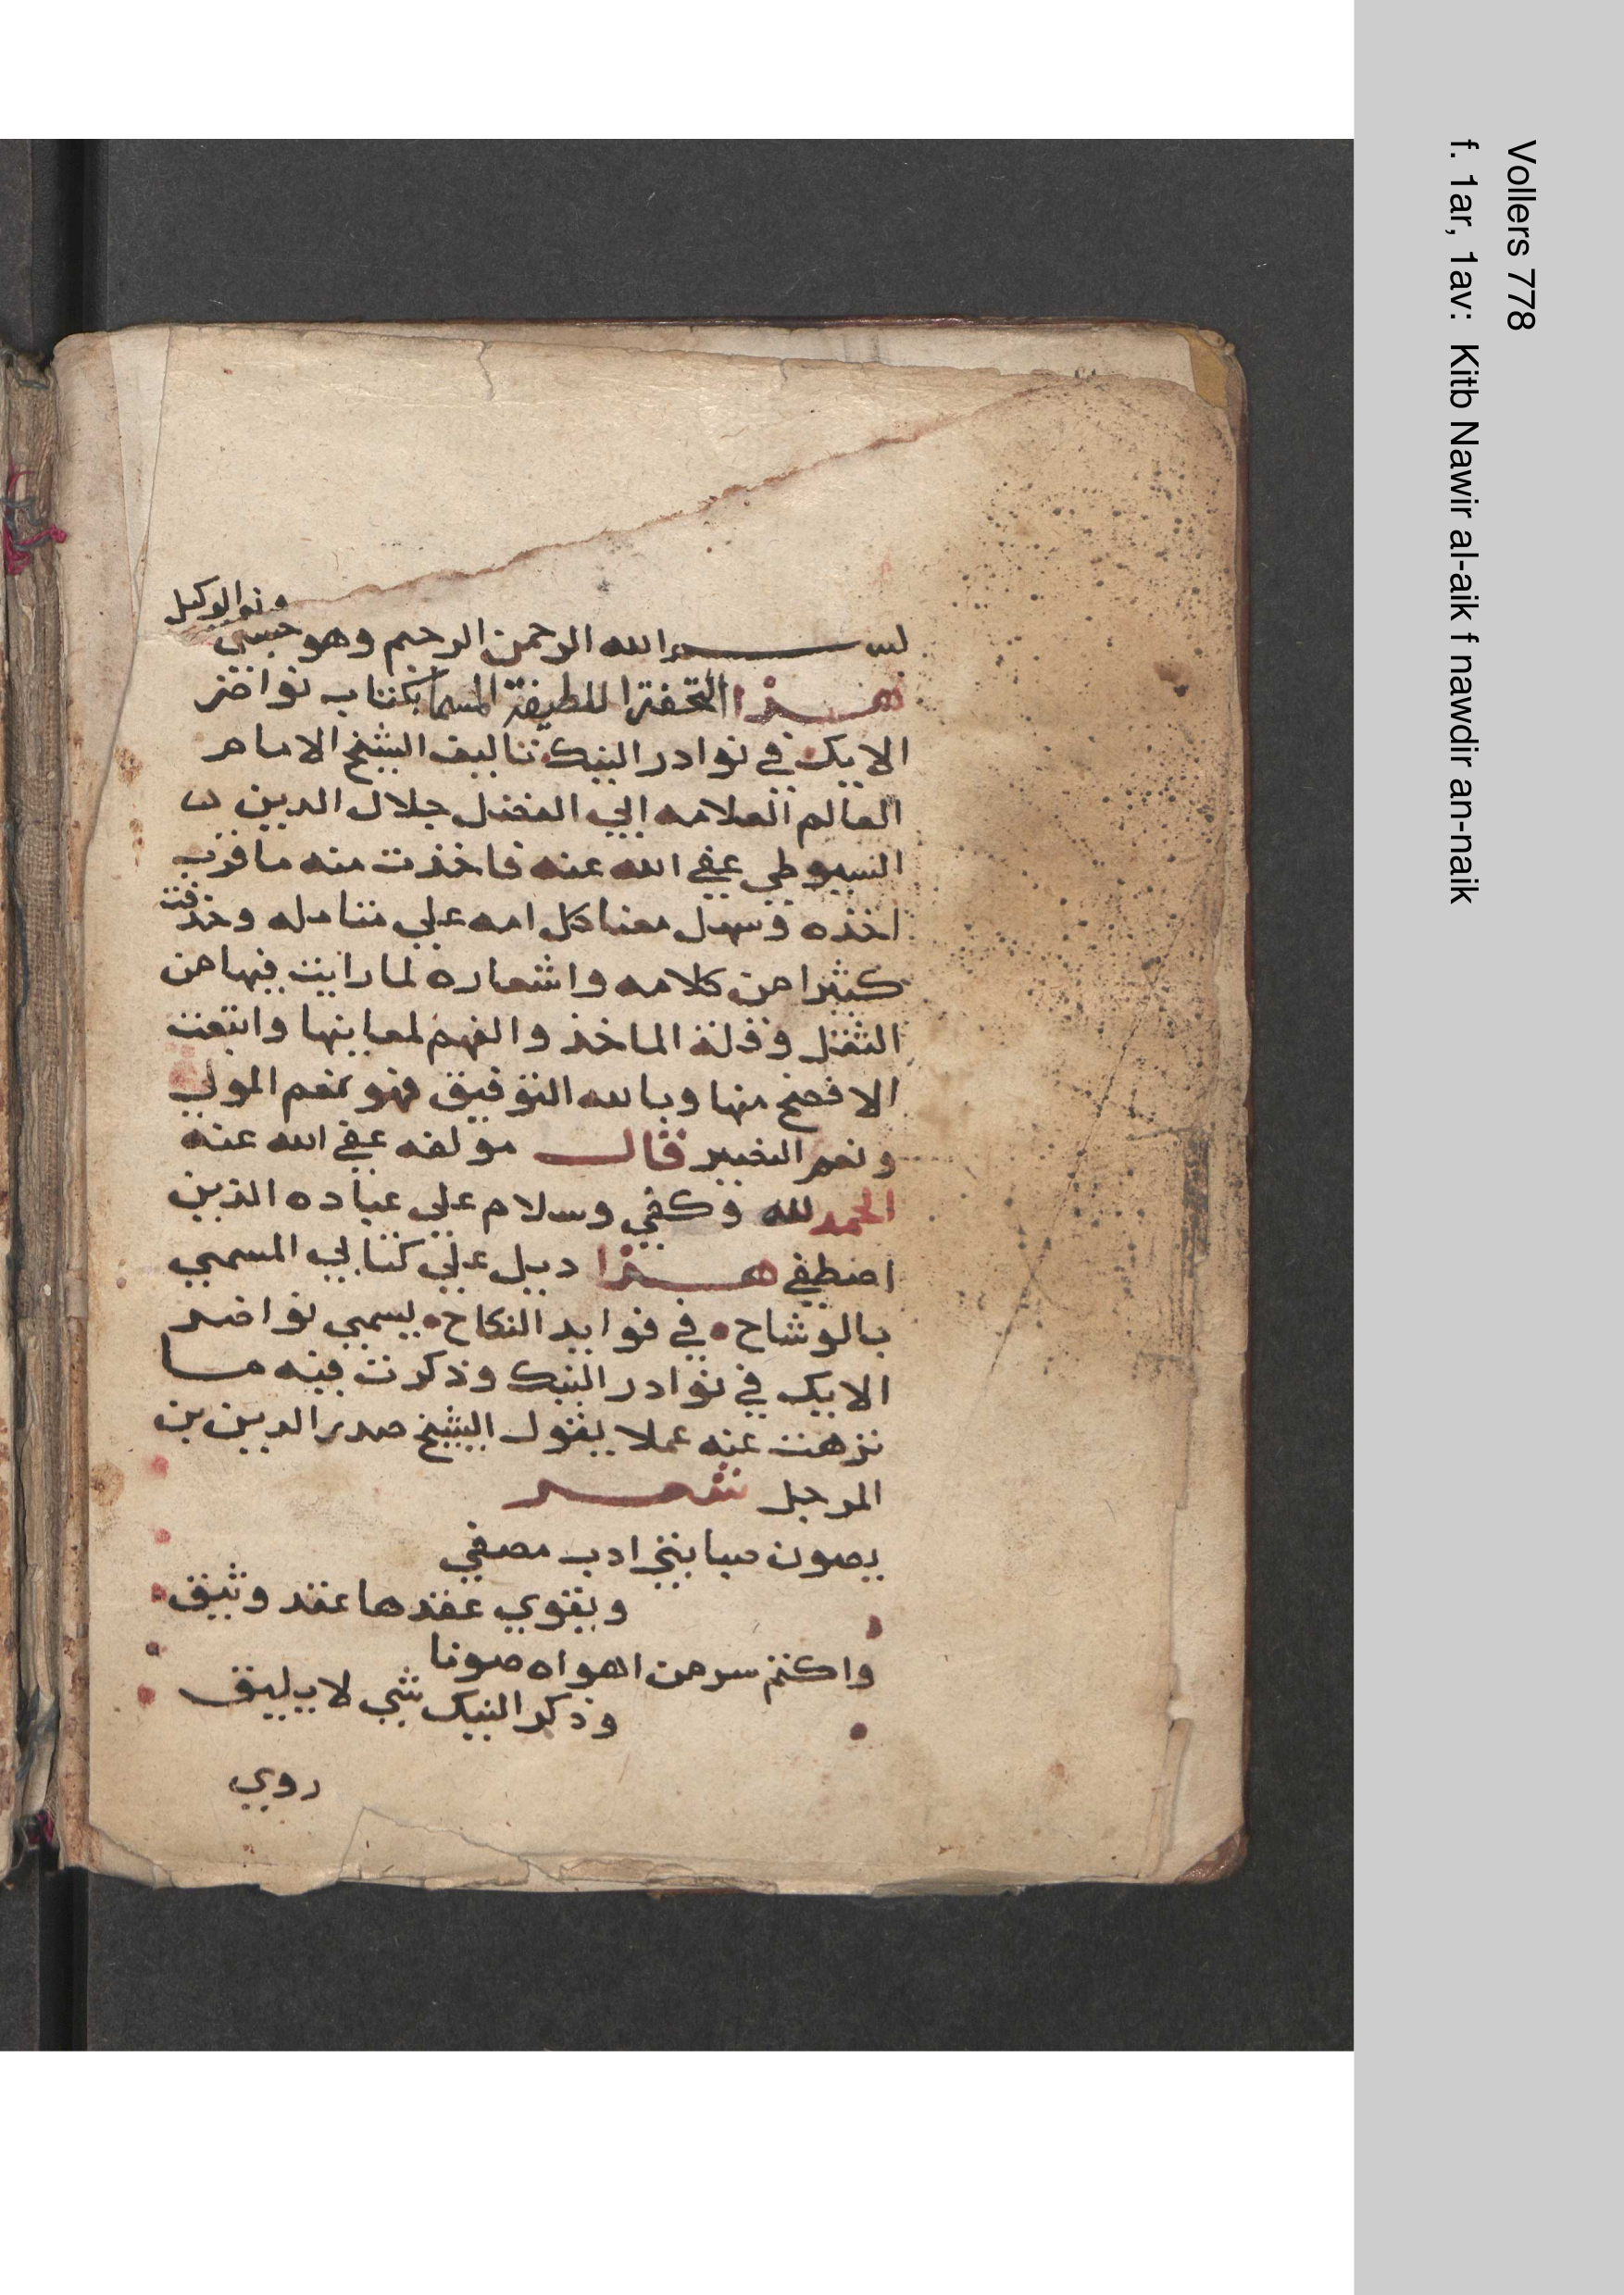 ونعم الوكيل
بسم الله الرحمن الرحيم وهو حسبي
هذا التحفة اللطيفة المسما بكتاب نواضر
الايك في نوادر النيك تاليف الشيخ الامام
العالم العلامه ابي الفضل جلال الدين
السيوطي عفي الله عنه فاخذت منه ما قرب
اخذه وسهل معناه علي متامله وحذفت
كثيرا من كلامه واشعاره لما رايت فيها من
الثقل وقلة الماخذ والفهم لمعاينها وانتقيت
الافصح منها وبالله التوفيق فهو نعم المولي
ونعم النصير قال مولفه عفي الله عنه
الحمد لله وكفي وسلام علي عباده الذين
اصطفي هذا ديل علي كتابي المسمي
بالوشاح في فوايد النكاح يسمي نواضر
الايك في نوادر النيك وذكرت فيه ما
نزهت عنه عملا بقول الشيخ صدر الدين بن
المرحل شعر
يصون صبابتي ادب مصفي
ويقوي عقدها عقد وثيق
واكتم سر من اهواه صونا
وذكر النيك شي لا يليق
روي
Vollers 778
f. 1ar, 1av: Kitb Nawir al-aik f nawdir an-naik